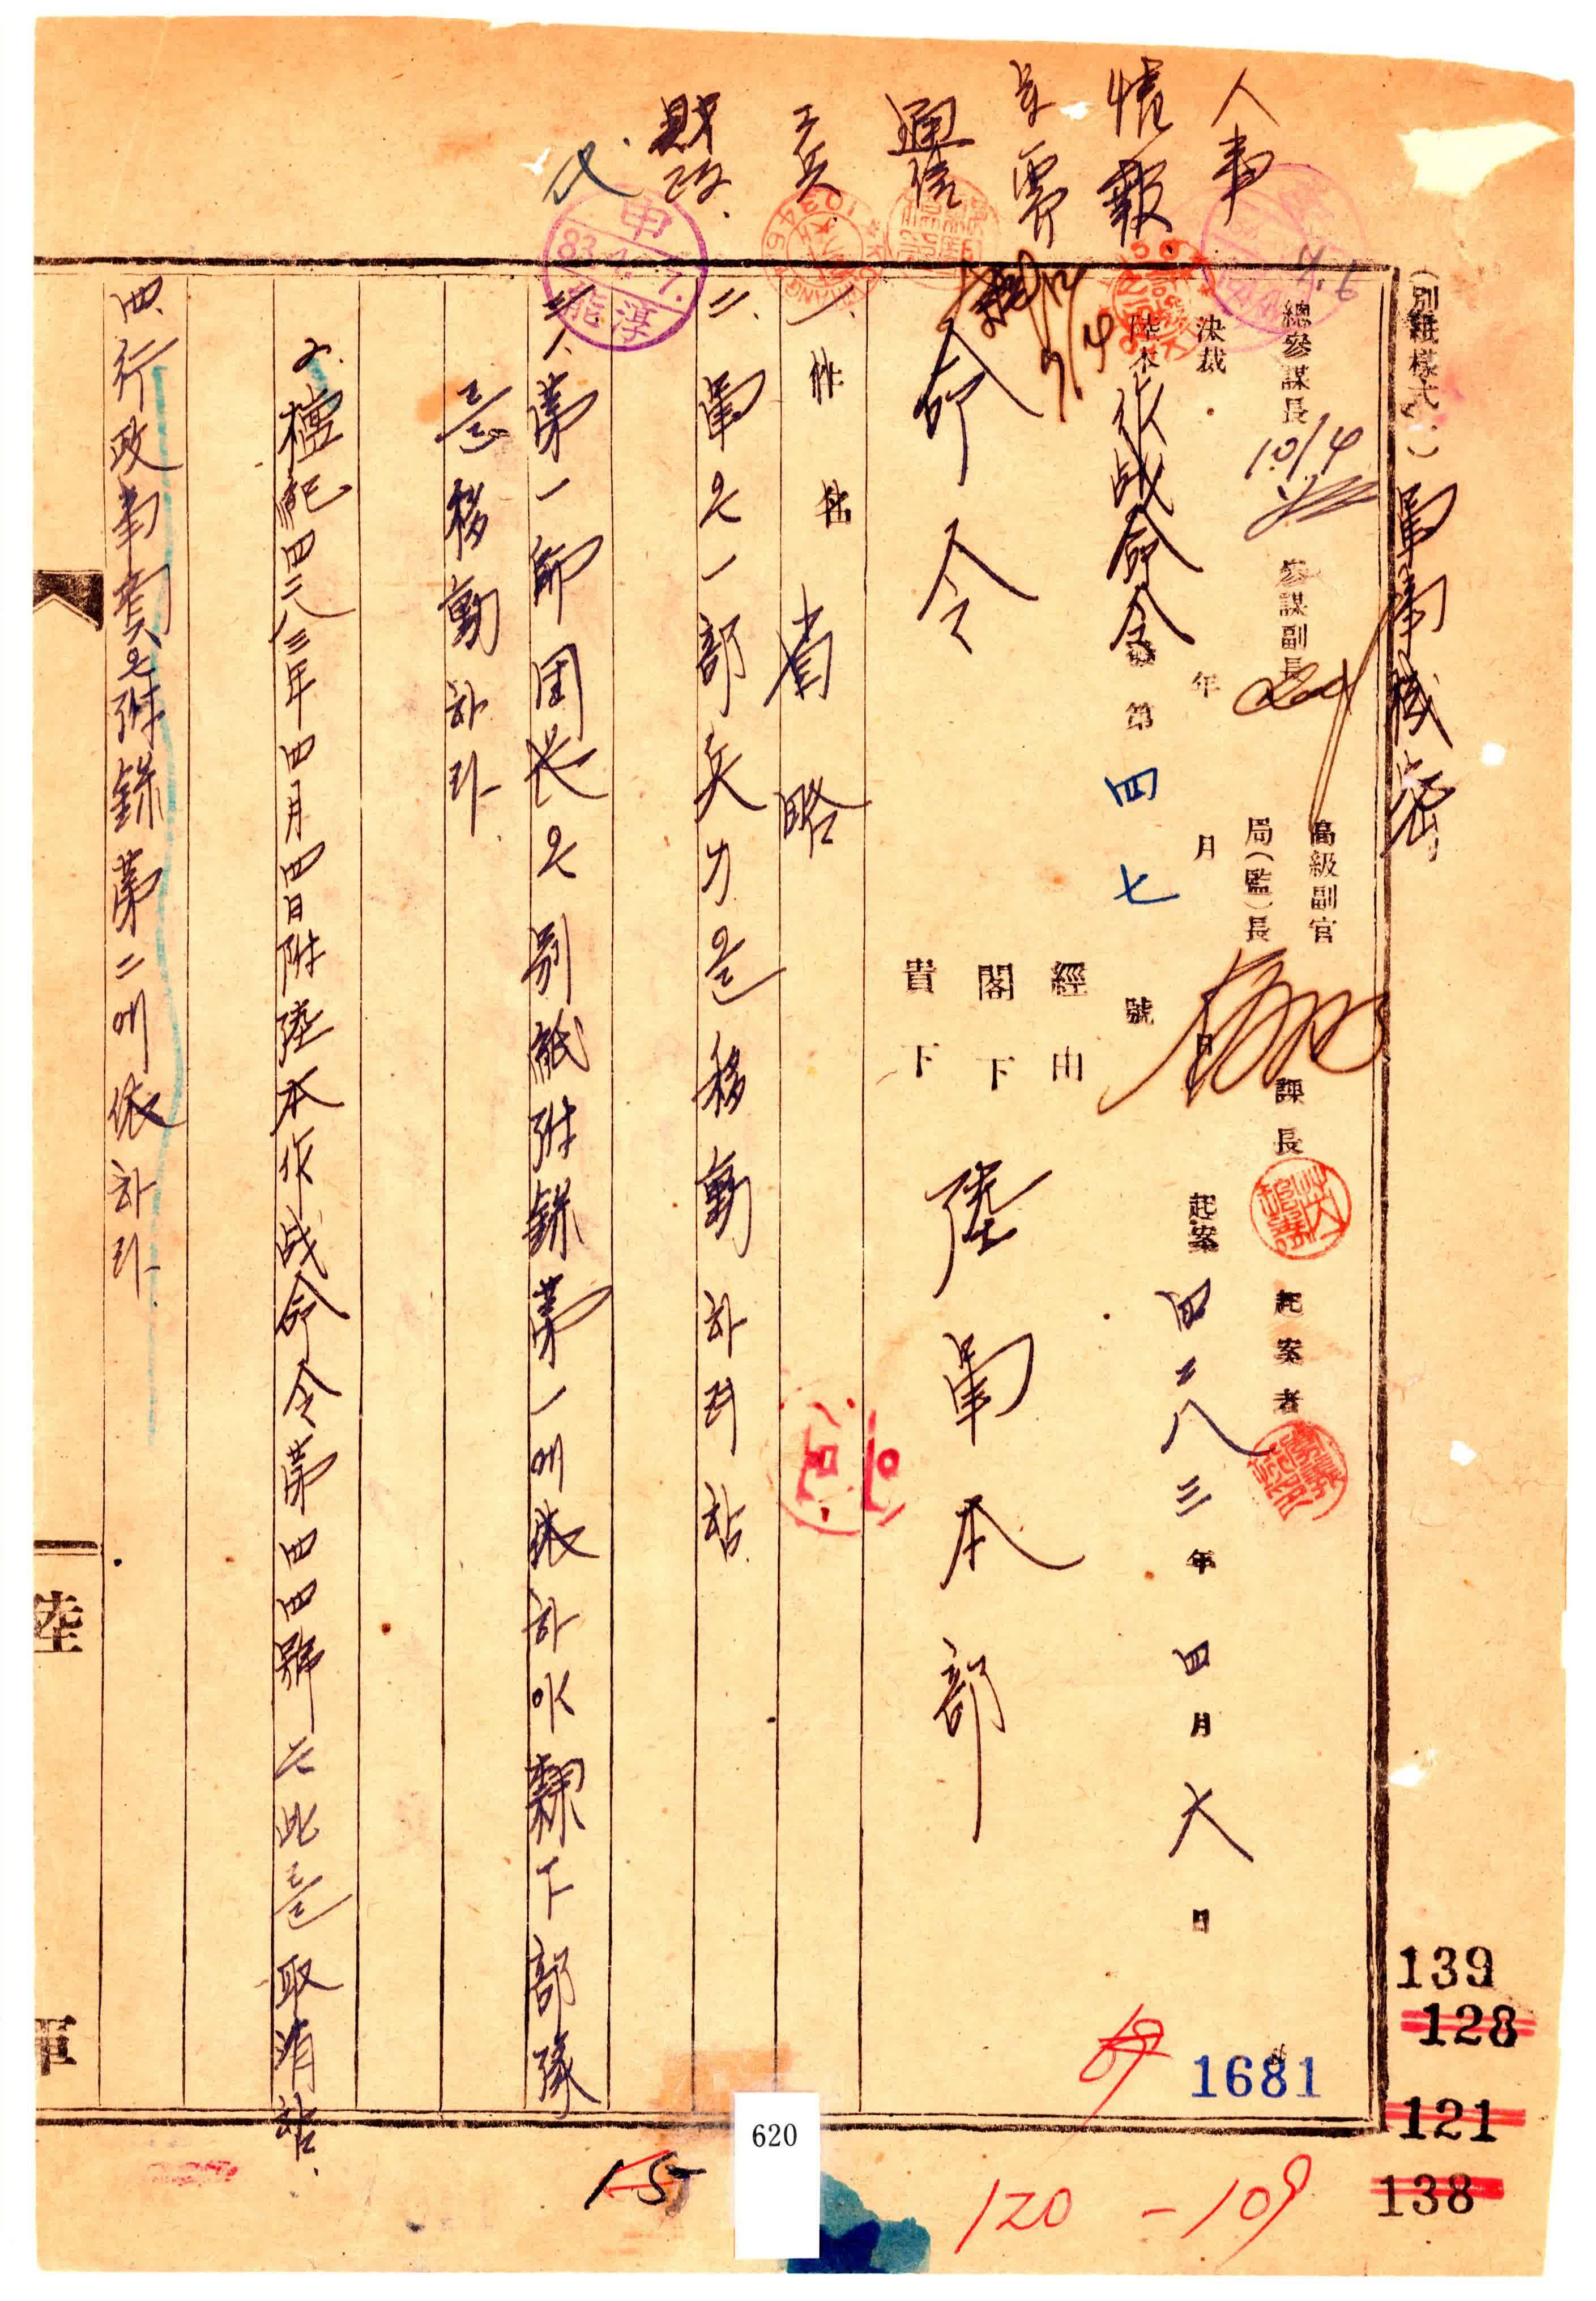 (別紙樣式一) 軍事機密
總參謀長 10/4 參謀副長 高級副官
局(監)長 課長 起案者
決裁 年 月 日 起案 四二八三年 四月 六日
陸本 作战命令 第四七號
經由
閣下
貴下
命令 陸軍本部
一、件名 省略
二、軍은 一部兵力을 移動하려 함.
三、1、第一師団长은 別紙附錄第一에 依하야 隷下部隊
를 移動하라.
2. 檀紀四二八三年四月四日附陸本作战命令第四四號는 此를 取消함.
四、行政事項은 附錄第二에 依하라.
人事
情報
軍需
通信
工兵
財政.
4.7
申
83.4.7.
陸
軍
139
128
121
138
1681
69
620
15
120 - 109